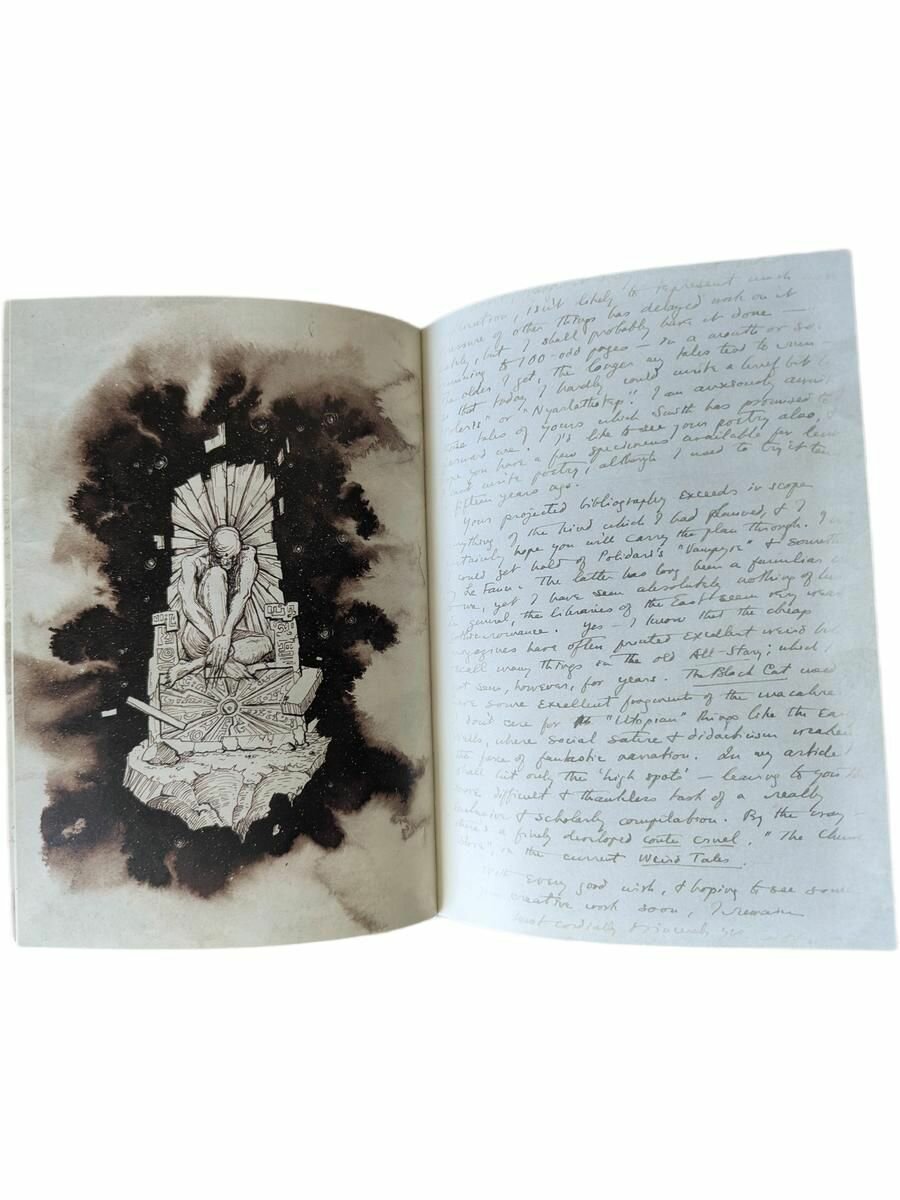 isn't likely to represent much
pressure of other things has delayed work on it
but I shall probably have it done —
running to 100-odd pages — in a month or so.
older I get, the longer my tales tend to
that today I hardly could write a brief bit
or "Nyarlathotep". I am anxiously
tales of yours which Smith has promised to
are. I'd like to see your poetry also,
you have a few specimens available for
write poetry, although I used to try it
fifteen years ago.
Your projected bibliography exceeds in scope
anything of the kind which I had planned, & I
certainly hope you will carry the plan through. I
could get hold of Polidori's "Vampyre" &
Le Fanu. The latter has long been a familiar
to me, yet I have seen absolutely nothing of
general, the libraries of the East seem very
Yes — I know that the cheap
magazines have often printed excellent weird
recall many things in the old All-Story; which I
not seen, however, for years. The Black Cat used
some excellent fragments of the macabre.
I don't care for the "Utopian" things like the
Wells, where social satire & didacticism weaken
the force of fantastic narration. In my article I
shall list only the 'high spots' — leaving to you the
more difficult & thankless task of a really
& scholarly compilation. By the way —
there's a finely developed conte cruel, "The
in the current Weird Tales.
With every good wish, & hoping to see some
creative work soon, I remain
most cordially & sincerely